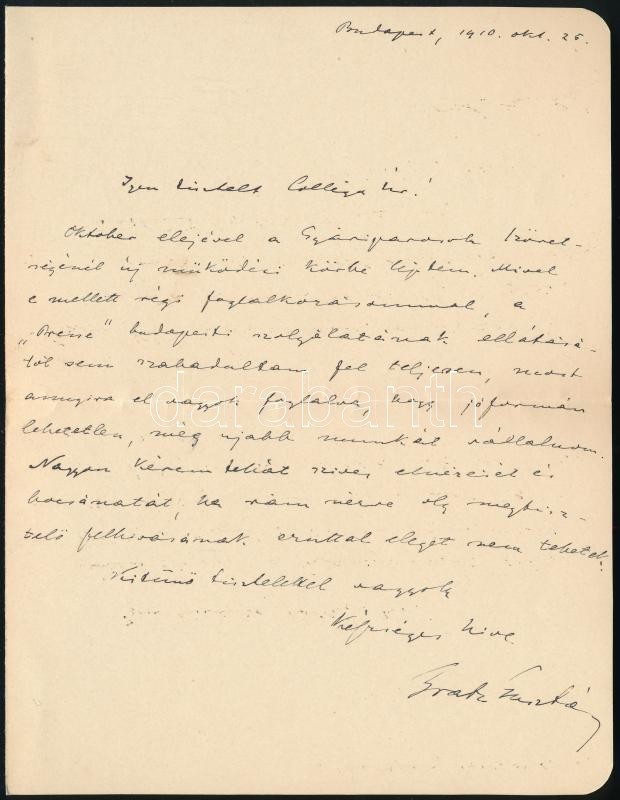 Budapest, 1910. okt. 25.
Igen tisztelt Collega Úr!
Október elejével a Gyáriparosok Szövet-
ségénél új működési körbe léptem. Mivel
e mellett régi foglalkozásommal, a
„Presse" budapesti szolgálatának ellátásá-
tól sem szabadultam fel teljesen, most
annyira el vagyok foglalva, hogy jóformán
lehetetlen, még ujabb munkát vállalnom.
Nagyon kérem tehát szives elnézését és
bocsánatát, ha rám nézve oly megtisz-
telő felhivásának ezuttal eleget nem tehetek.
Kitünő tisztelettel vagyok
Készséges hive
Gratz Gusztáv
darabanth